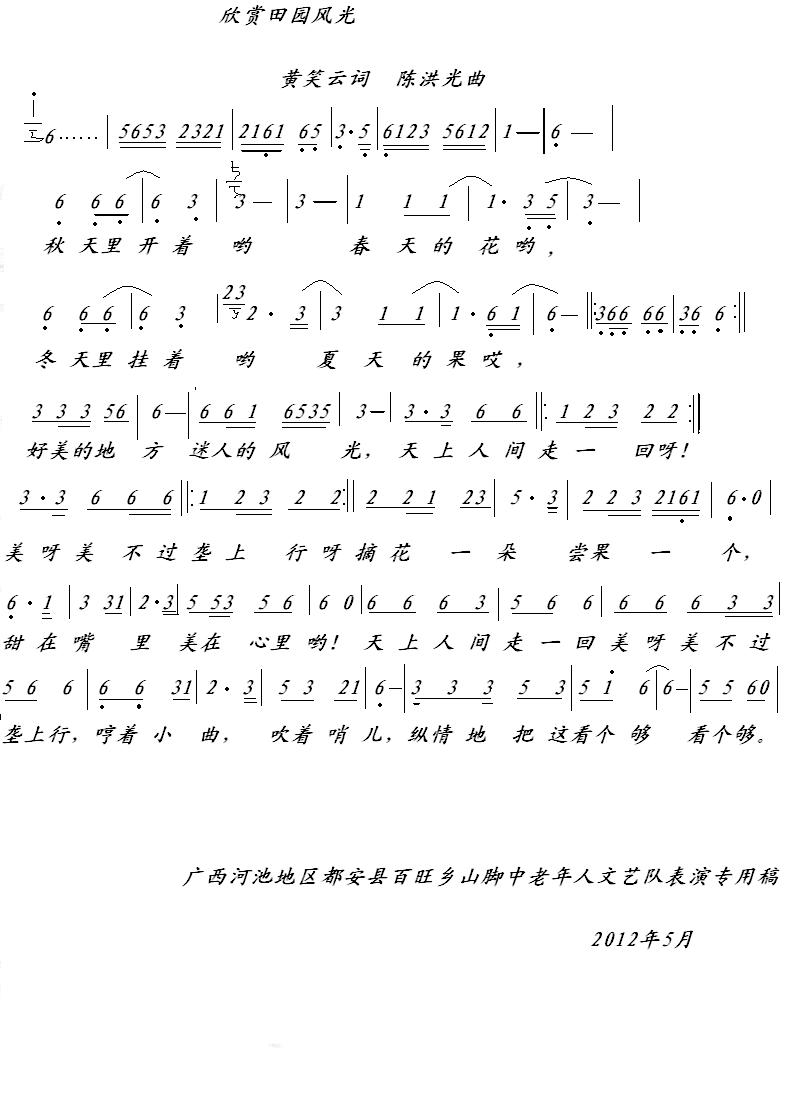 欣赏田园风光
黄笑云词 陈洪光曲
6······ | 5653 2321 | 2161 65 | 3·5 | 6123 5612 | 1— | 6 — |
6 6 6 | 6 3 3 — | 3 — | 1 1 1 | 1· 3 5 | 3 — |
秋 天里 开 着 哟 春 天 的 花 哟，
6 6 6 | 6 3 | 23 2 · 3 | 3 1 1 | 1 · 6 1 | 6 — ‖: 366 66 | 36 6 :‖
冬 天里 挂 着 哟 夏 天 的 果 哎，
3 3 3 56 | 6— | 6 6 1 6535 | 3— | 3·3 6 6 ‖: 1 2 3 2 2 :‖
好美的地 方 迷人的 风 光，天 上 人 间 走 一 回呀！
3 · 3 6 6 6 ‖: 1 2 3 2 2 :‖ 2 2 1 23 | 5 · 3 | 2 2 3 2161 | 6·0 |
美 呀 美 不 过 垄 上 行 呀 摘 花 一 朵 尝 果 一 个，
6 · 1 | 3 31 | 2·3 | 5 53 5 6 | 6 0 | 6 6 6 3 | 5 6 6 | 6 6 6 3 3
甜 在 嘴 里 美在 心里 哟！天 上 人 间 走 一 回 美 呀 美 不 过
5 6 6 | 6 6 31 | 2· 3 | 5 3 21 | 6— | 3 3 3 5 3 | 5 1 6 | 6— | 5 5 60 |
垄上行，哼着 小 曲， 吹着 哨 儿，纵情 地 把 这看个 够 看个够。
广西河池地区都安县百旺乡山脚中老年人文艺队表演专用稿
2012年5月